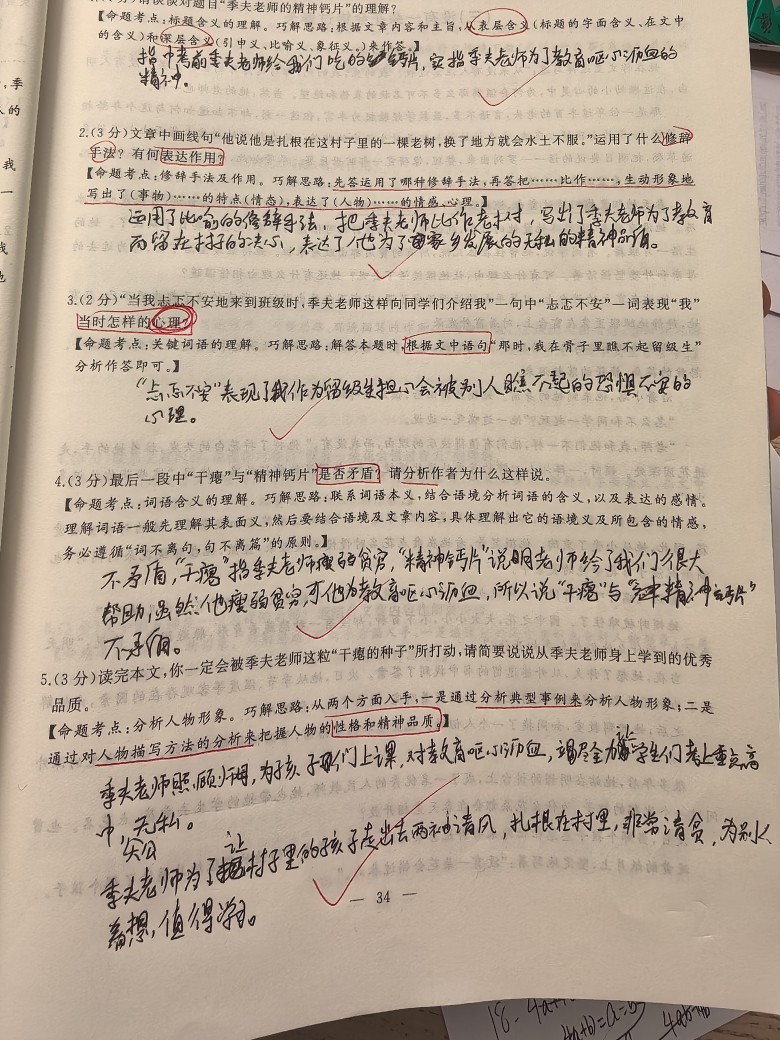 谈谈对题目“季夫老师的精神钙片”的理解?
【命题考点:标题含义的理解。巧解思路:根据文章内容和主旨,从表层含义(标题的字面含义、在文中
的含义)和深层含义(引申义、比喻义、象征义。)来作答。】
指中考前季夫老师给我们吃的钙片,实指季夫老师为了教育呕心沥血的
精神。
2.(3分)文章中画线句“他说他是扎根在这村子里的一棵老树,换了地方就会水土不服。”运用了什么修辞
手法?有何表达作用?
【命题考点:修辞手法及作用。巧解思路:先答运用了哪种修辞手法,再答把……比作……,生动形象地
写出了(事物)……的特点(情态),表达了(人物)……的情感、心理。】
运用了比喻的修辞手法,把季夫老师比作老树,写出了季夫老师为了教育
而留在村子的决心,表达了他为了家乡发展的无私的精神品质。
3.(2分)“当我忐忑不安地来到班级时,季夫老师这样向同学们介绍我”一句中“忐忑不安”一词表现“我”
当时怎样的心理?
【命题考点:关键词语的理解。巧解思路:解答本题时,根据文中语句“那时,我在骨子里瞧不起留级生”
分析作答即可。】
“忐忑不安”表现了我作为留级生担心会被别人瞧不起的恐惧不安的
心理。
4.(3分)最后一段中“干瘪”与“精神钙片”是否矛盾?请分析作者为什么这样说。
【命题考点:词语含义的理解。巧解思路:联系词语本义,结合语境分析词语的含义,以及表达的感情。
理解词语一般先理解其表面义,然后要结合语境及文章内容,具体理解出它的语境义及所包含的情感,
务必遵循“词不离句,句不离篇”的原则。】
不矛盾,“干瘪”指季夫老师瘦弱贫穷,“精神钙片”说明老师给了我们很大
帮助,虽然他瘦弱贫穷,可他为教育呕心沥血,所以说“干瘪”与“精神钙片”
不矛盾。
5.(3分)读完本文,你一定会被季夫老师这粒“干瘪的种子”所打动,请简要说说从季夫老师身上学到的优秀
品质。
【命题考点:分析人物形象。巧解思路:从两个方面入手,一是通过分析典型事例来分析人物形象;二是
通过对人物描写方法的分析来把握人物的性格和精神品质。】
季夫老师照顾师娘,为孩子们上课,对教育呕心沥血,竭尽全力让学生们考上重点高
中,无私。
季夫老师为了让村子里的孩子走出去两袖清风,扎根在村里,非常清贫,为别人
着想,值得学习。
— 34 —